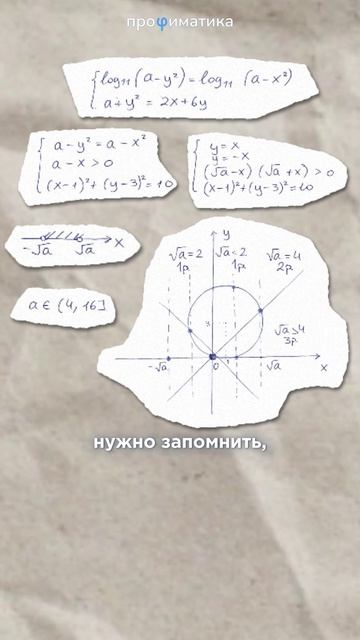 профиматика
log₁₁(a-y²) = log₁₁(a-x²)
a+y² = 2x+6y
a-y² = a-x²
a-x > 0
(x-1)²+(y-3)² = 10
y = x
y = -x
(√a-x) (√a+x) > 0
(x-1)²+(y-3)² = 10
-√a √a x
a ∈ (4, 16]
y
√a = 2 √a < 2 √a = 4
1р. 1р. 2р.
√a ≥ 4
3р.
-√a 0 1 √a x
нужно запомнить,